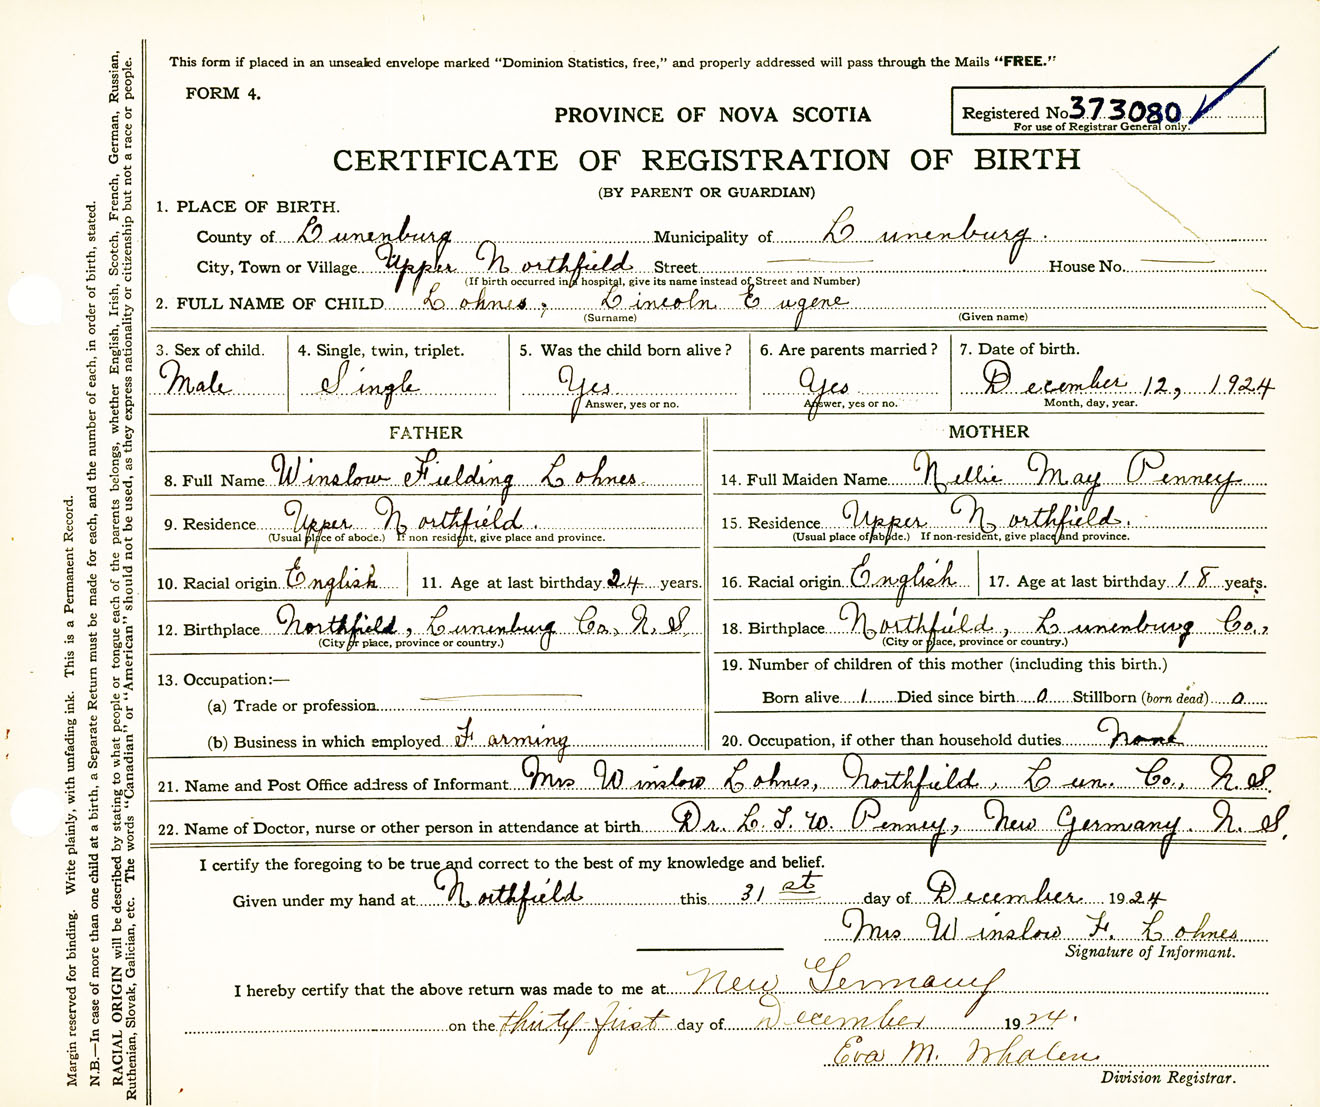 This form if placed in an unsealed envelope marked "Dominion Statistics, free," and properly addressed will pass through the Mails "FREE."
FORM 4.
PROVINCE OF NOVA SCOTIA
Registered No 373080
For use of Registrar General only.
CERTIFICATE OF REGISTRATION OF BIRTH
(BY PARENT OR GUARDIAN)
1. PLACE OF BIRTH.
County of Lunenburg Municipality of Lunenburg.
City, Town or Village Upper Northfield Street House No.
(If birth occurred in a hospital, give its name instead of Street and Number)
2. FULL NAME OF CHILD Lohnes, Lincoln Eugene
(Surname) (Given name)
3. Sex of child. 4. Single, twin, triplet. 5. Was the child born alive? 6. Are parents married? 7. Date of birth.
Male Single Yes Yes December 12, 1924
Answer, yes or no. Answer, yes or no. Month, day, year.
FATHER MOTHER
8. Full Name Winslow Fielding Lohnes 14. Full Maiden Name Nellie May Penney
9. Residence Upper Northfield. 15. Residence Upper Northfield.
(Usual place of abode.) If non resident, give place and province. (Usual place of abode.) If non-resident, give place and province.
10. Racial origin English 11. Age at last birthday 24 years. 16. Racial origin English 17. Age at last birthday 18 years.
12. Birthplace Northfield, Lunenburg Co., N.S. 18. Birthplace Northfield, Lunenburg Co.,
(City or place, province or country.) (City or place, province or country.)
13. Occupation:— 19. Number of children of this mother (including this birth.)
(a) Trade or profession Born alive 1 Died since birth 0 Stillborn (born dead) 0
(b) Business in which employed Farming 20. Occupation, if other than household duties None
21. Name and Post Office address of Informant Mrs Winslow Lohnes, Northfield, Lun. Co., N.S.
22. Name of Doctor, nurse or other person in attendance at birth Dr. L. T. W. Penney, New Germany. N. S.
I certify the foregoing to be true and correct to the best of my knowledge and belief.
Given under my hand at Northfield this 31st day of December 1924
Mrs Winslow F. Lohnes
Signature of Informant.
I hereby certify that the above return was made to me at New Germany
on the thirty-first day of December 1924.
Eva M. Whalen
Division Registrar.
Margin reserved for binding. Write plainly, with unfading ink. This is a Permanent Record.
N.B.—In case of more than one child at a birth, a Separate Return must be made for each, and the number of each, in order of birth, stated.
RACIAL ORIGIN will be described by stating to what people or tongue each of the parents belongs, whether English, Irish, Scotch, French, German, Russian,
Ruthenian, Slovak, Galician, etc. The words "Canadian" or "American" should not be used, as they express nationality or citizenship but not a race or people.